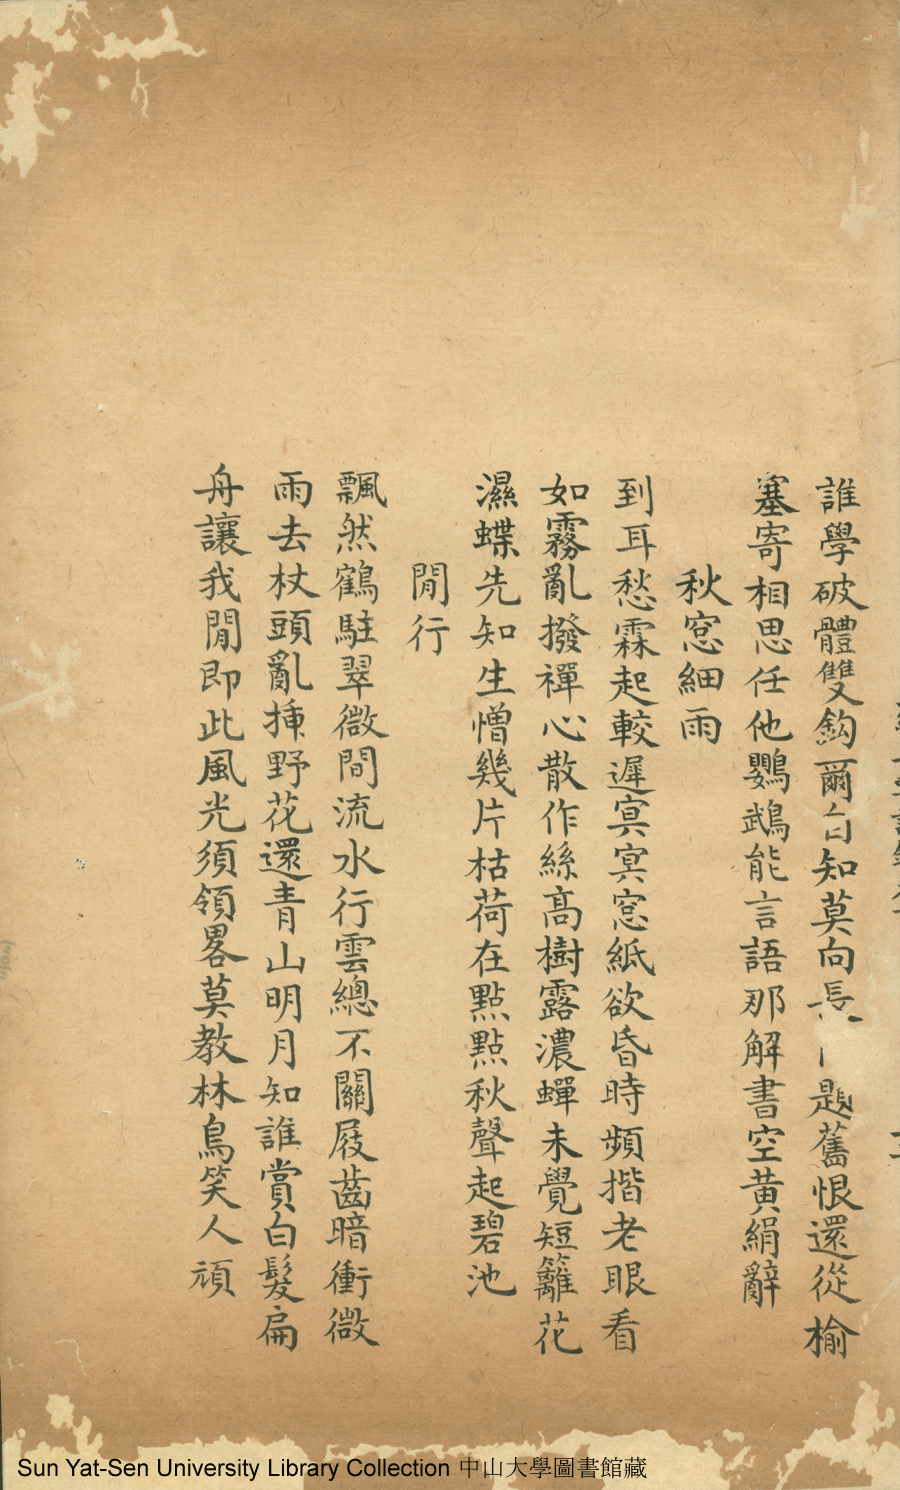 誰學破體雙鈎爾自知莫向長門題舊恨還從榆
塞寄相思任他鸚鵡能言語那解書空黄絹辭
秋窓細雨
到耳愁霖起較遲寞寞窓紙欲昏時頻揩老眼看
如霧亂撥禪心散作絲高樹露濃蟬未覺短籬花
濕蝶先知生憎幾片枯荷在點點秋聲起碧池
閒行
飄然鶴駐翠微間流水行雲總不關屐齒暗衝微
雨去杖頭亂揷野花還青山明月知誰賞白髮扁
舟讓我閒即此風光須領畧莫教林鳥笑人頑
Sun Yat-Sen University Library Collection 中山大學圖書館藏